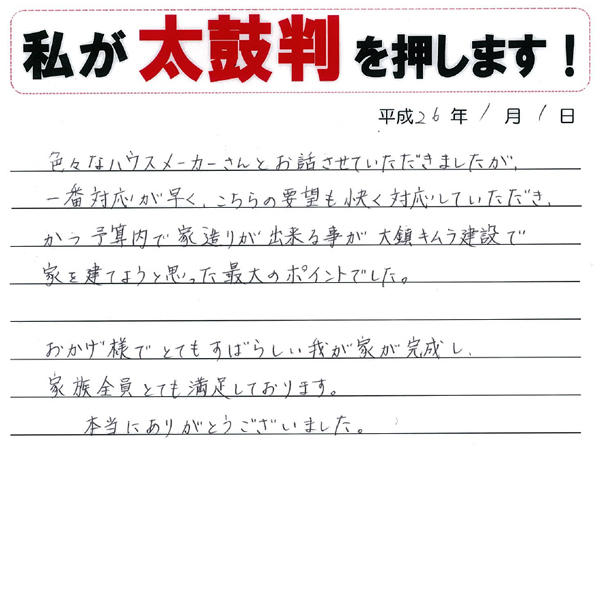 私が太鼓判を押します！
平成26年1月1日
色々なハウスメーカーさんとお話させていただきましたが、
一番対応が早く、こちらの要望も快く対応していただき、
かつ予算内で家造りが出来る事が大鎮キムラ建設で
家を建てようと思った最大のポイントでした。
おかげ様でとてもすばらしい我が家が完成し、
家族全員とても満足しております。
本当にありがとうございました。